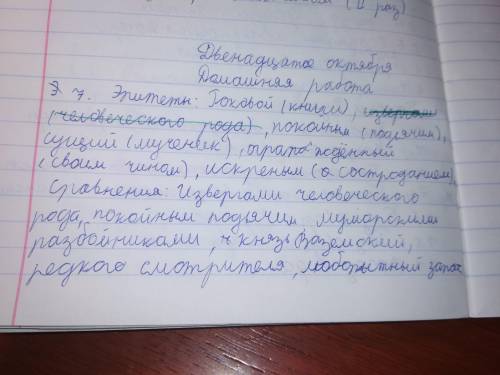 (11 раз)
Двенадцатое октября
Домашняя работа
7. Эпитеты: Роковой (книги), извергами
(человеческого рода), покойным (подьячим),
сущий (мученик),
(своим чином), искреным (о состроданием)
Сравнения: Извергами человеческого
рода, покойным подьячим муромскими
разбойниками, князь Вяземский,
редкого смотрителя, любопытный запас